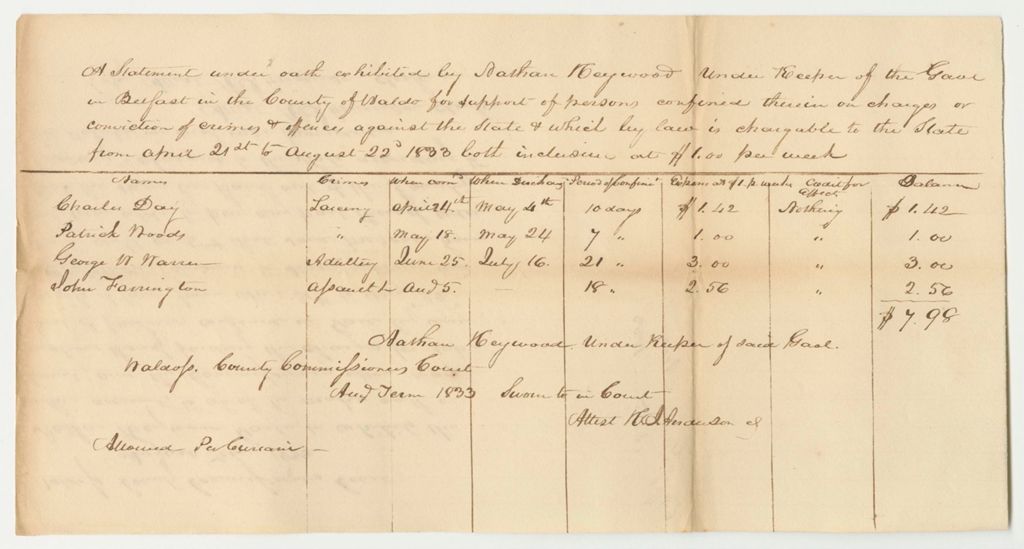 A Statement under oath exhibited by Nathan Heywood Under Keeper of the Gaol
in Belfast in the County of Waldo for support of persons confined therein on charges or
conviction of crimes & offences against the State & which by law is chargable to the State
from april 21st to August 22d 1833 both inclusive at $1.00 per week
Names Crimes When comd When Discharg Period of Confint Expens at $1. p. week Credit for Effects Balance
Charles Day Larceny april 24th May 4th 10 days $1.42 Nothing $1.42
Patrick Woods " May 18. May 24 7 " 1.00 " 1.00
George W Warren Adultery June 25. July 16. 21 " 3.00 " 3.00
John Farrington assault &c Aug 5. — 18 " 2.56 " 2.56
$7.98
Nathan Heywood Under Keeper of said Gaol.
Waldo ss. County Commissioners Court
Aug Term 1833 Sworn to in Court
Attest N. J. Anderson Clk
Allowed Per Curiam —